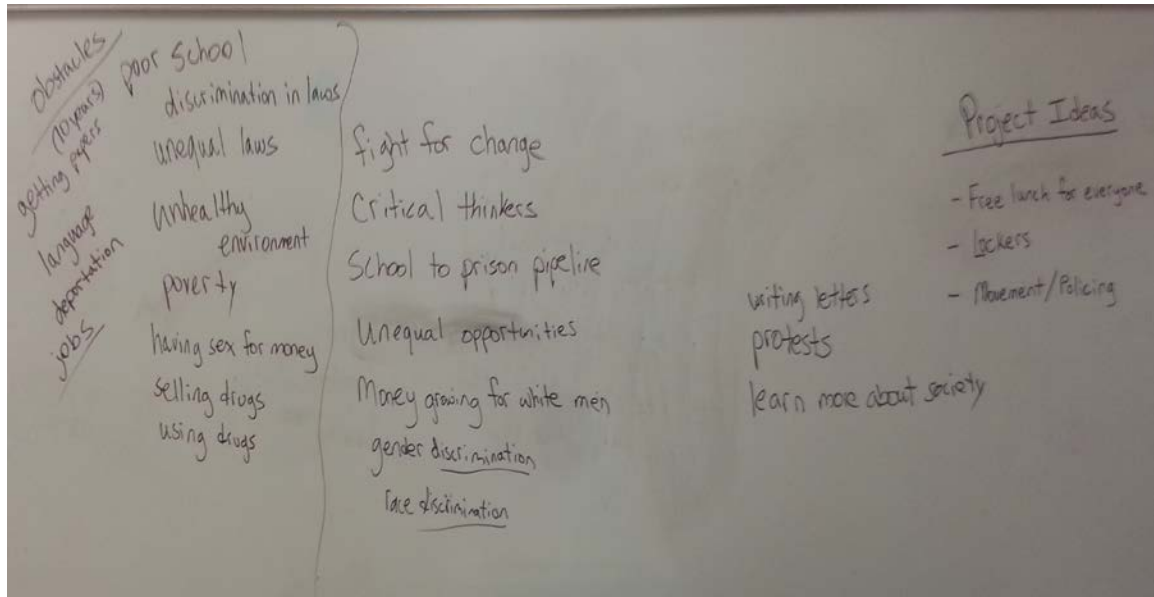 obstacles
(10 years)
getting papers
language
deportation
jobs
poor school
discrimination in laws
unequal laws
unhealthy
environment
poverty
having sex for money
selling drugs
using drugs
fight for change
Critical thinkers
School to prison pipeline
Unequal opportunities
Money growing for white men
gender discrimination
race discrimination
writing letters
protests
learn more about society
Project Ideas
- Free lunch for everyone
- Lockers
- Movement/Policing